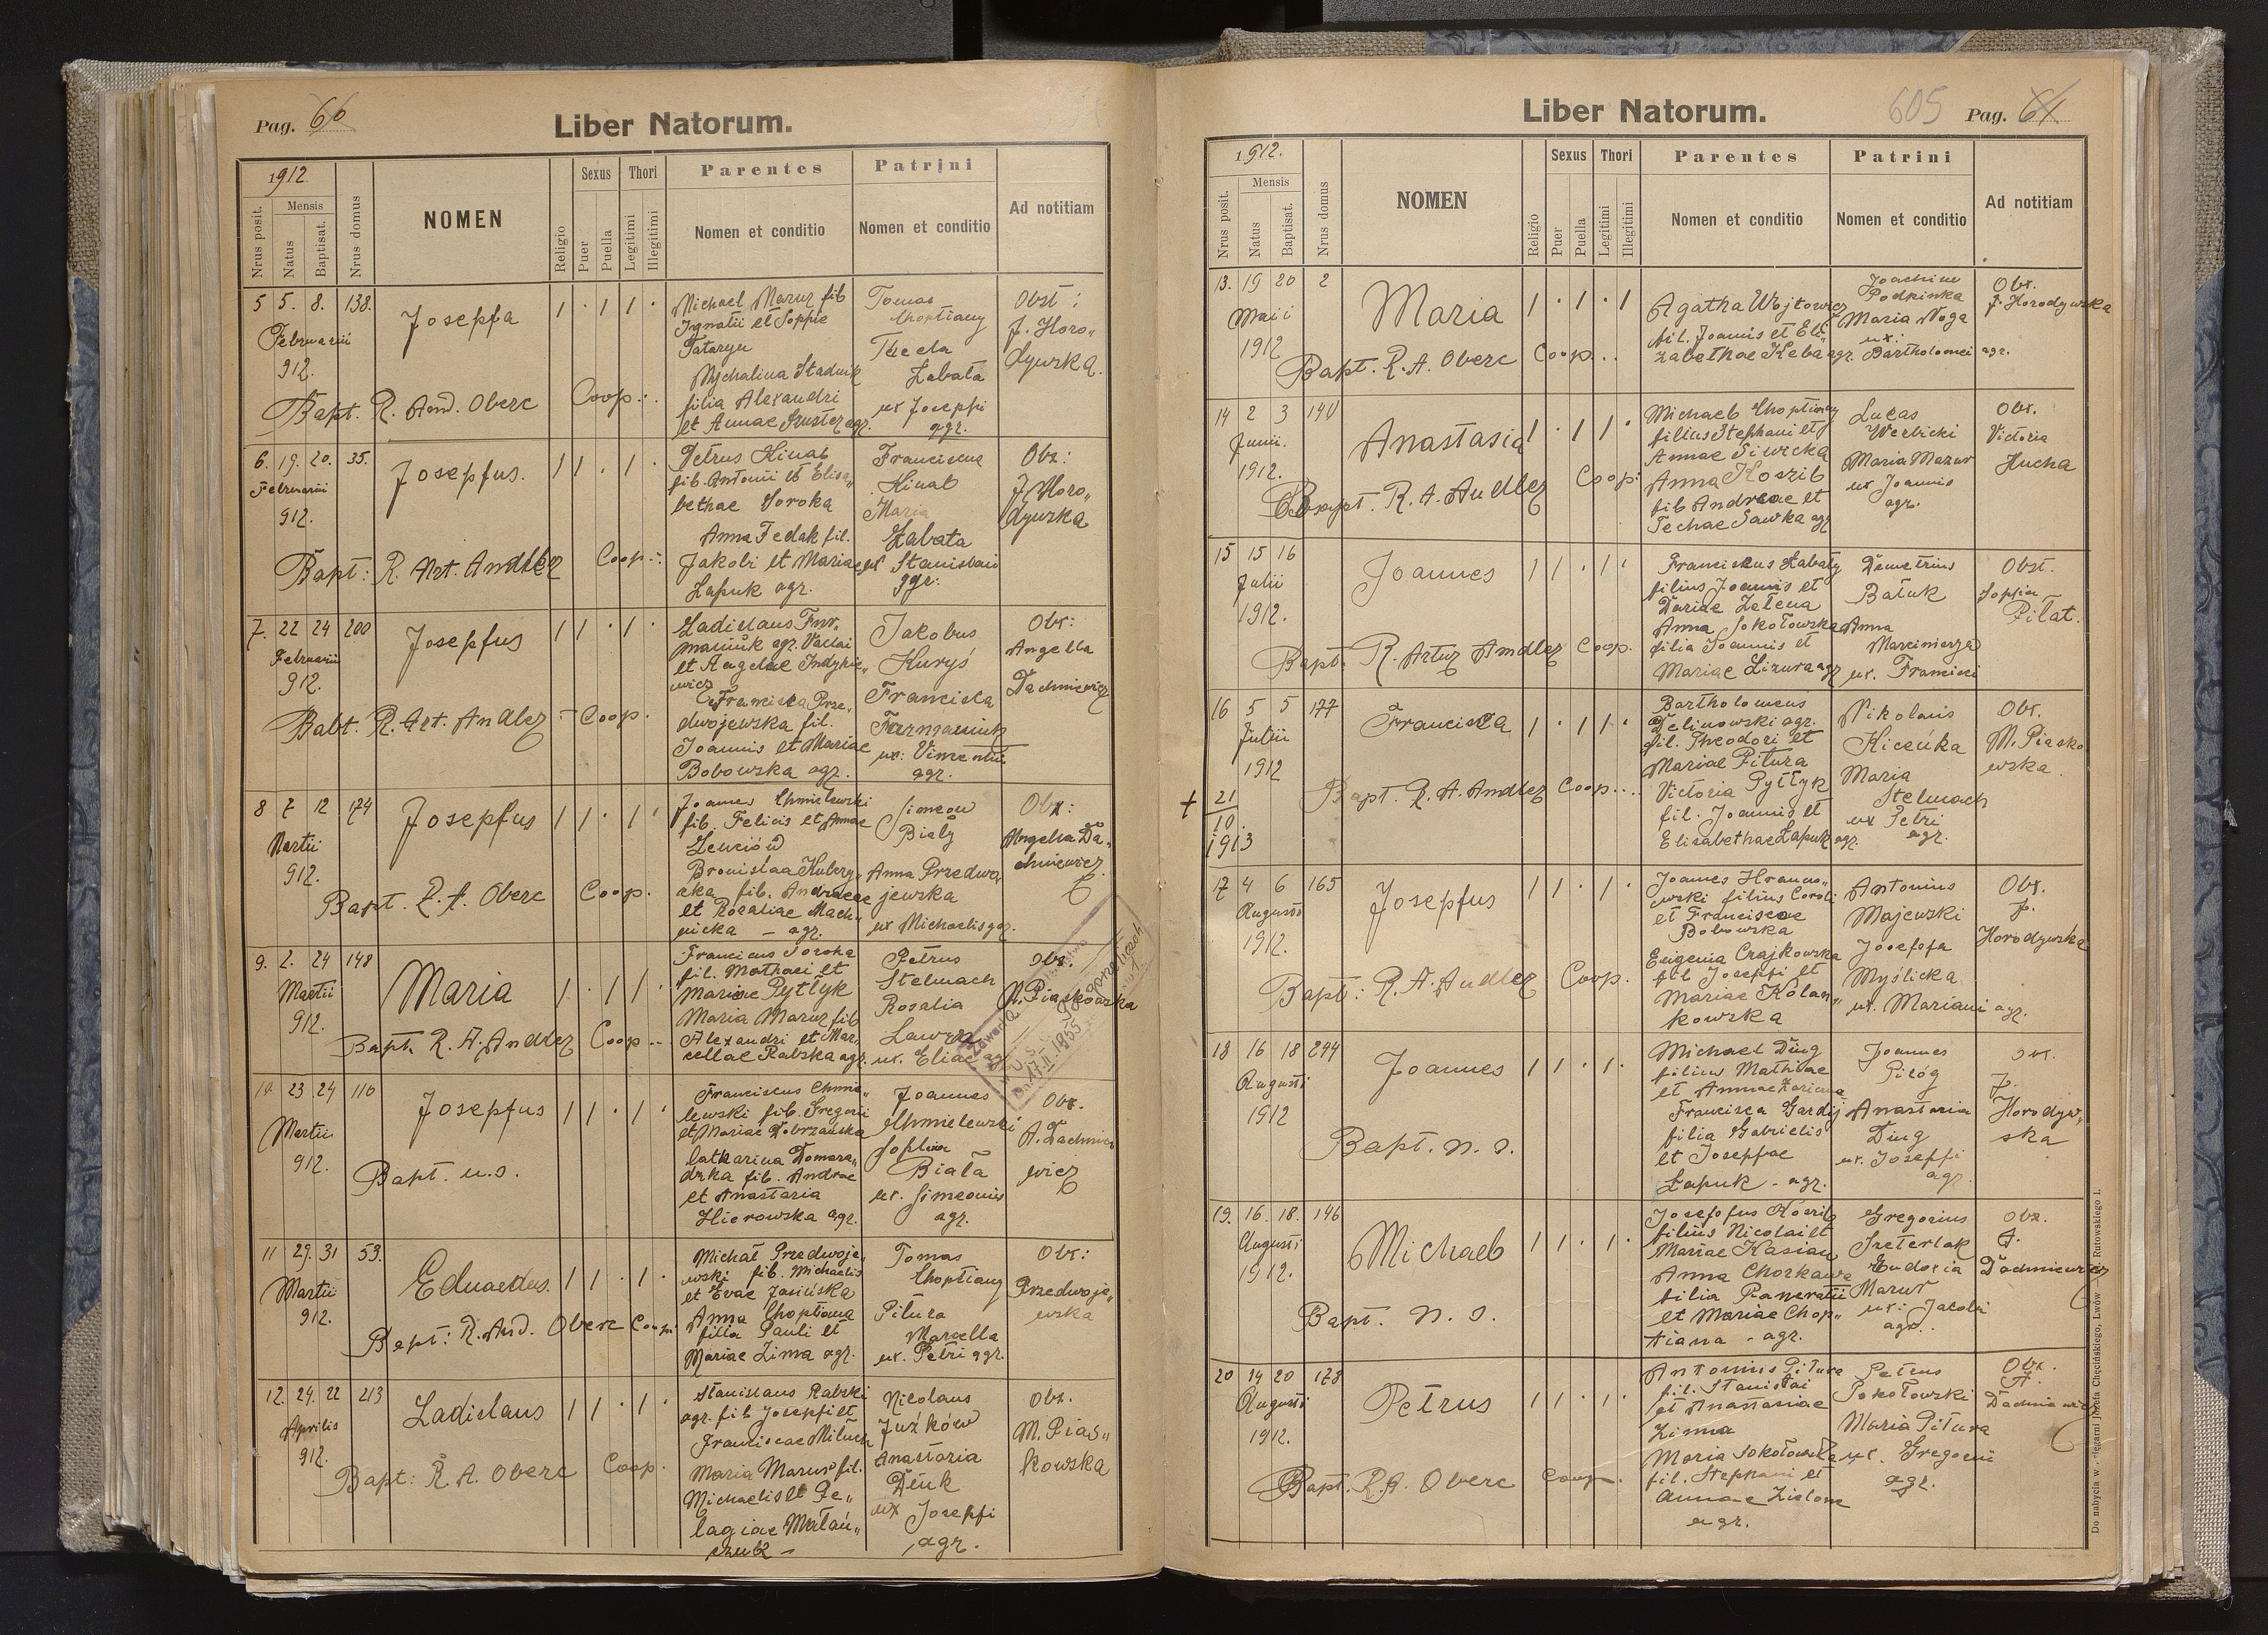 Pag. 60
Liber Natorum.
1912
Nrus posit.
Mensis
Natus
Baptisat.
Nrus domus
NOMEN
Religio
Sexus
Puer
Puella
Thori
Legitimi
Illegitimi
Parentes
Nomen et conditio
Patrini
Nomen et conditio
Ad notitiam
5 5. 8. 138.
Februarii
912.
Josepha
1 . 1 1 .
Michael Mazur fil
Ignatii et Sophie
Michalina Stadnik
filia Alexandri
et Annae Szuster agr.
Tomas
Choptiany
Thecla
Zabata
ux Josephi
agr.
Obst:
J. Horo„
dywska.
Bapt. R. And. Oberc Coop.
6. 19. 20. 35.
Februarii
912.
Josephus.
1 1 . 1 .
Petrus Kinal
fil. Antonii et Elisa„
bethae Soroka
Anna Fedak fil.
Jakobi et Mariae
Łapuk agr.
Franciscus
Kinal
Maria
Żabata
ux Stanislai
agr.
Obx:
J Horo„
dywska
Bapt: R. Art. Andlez Coop.
7. 22 24 200
Februarii
912.
Josephus
1 1 . 1 .
Ladislaus Fur„
maniuk agr. Vaclai
et Angelae Indykie„
wicz
Francisca Prze„
dwojewska fil.
Joannis et Mariae
Bobowska agr.
Jakobus
Kuryś
Francisca
Furmaniuk
ux: Vincentii
agr.
Obx:
Angella
Dachniewicz
Babt. R. Art. Andlez - Coop.
8 7 12 174
Martii
912.
Josephus
1 1 . 1 .
Joannes Chmielewski
fil. Felicis et Annae
Zenciów
fil. Andreae
et Rosaliae Mach„
nicka - agr.
Simeon
Biały
Anna Przedwo„
jewska
ux Michaelis agr.
Obx:
Angella Da„
chniewicz
Bapt. R. A. Oberc Coop.
9. 2. 24 148
Martii
912.
Maria
1 . 1 1 .
Franciscus Soroka
fil. Mathaei et
Mariae Pytlyk
Maria Mazur fil
Alexandri et Mar„
cellae Rabska agr.
Petrus
Stelmach
Rosalia
ux. Eliae agr
Obx.
M. Piaskowska
Bapt. R. A. Andlez Coop.
10 23 24 110
Martii
912.
Josephus
1 1 . 1 .
Franciscus Chmie„
lewski fil. Gregorii
et Mariae Dobrzańska
Catharina Domara„
dzka fil. Andreae
et Anastasia
Hierowska agr.
Joannes
Chmielewski
Sophia
Biała
ux. Simeonis
agr.
Obx.
A. Dachnie
wicz
Bapt. u.s.
11 29. 31 53.
Martii
912.
Eduardus.
1 1 . 1 .
Michał Przedwoje„
wski fil. Michaelis
et Evae Jasińska
Anna Choptiana
filia Pauli et
Mariae Zima agr.
Tomas
Choptiany
Pitura
Marcella
ux. Petri agr.
Obx:
Przedwoje„
wska
Bapt: R. And. Oberc Coop.
12. 24. 22 213
Aprilis
912.
Ladislaus
1 1 . 1 .
Stanislaus Rabski
agr. fil Josephi et
Franciscae Miluch
Maria Marus fil.
Michaelis et Pe„
lagiae Matań„
czuk -
Nicolaus
Juźków
Anastasia
ux Josephi
agr.
Obx.
M. Pias„
kowska
Bapt: R. A. Oberc Coop.
Liber Natorum.
605 Pag. 61
1912.
Nrus posit.
Mensis
Natus
Baptisat.
Nrus domus
NOMEN
Religio
Sexus
Puer
Puella
Thori
Legitimi
Illegitimi
Parentes
Nomen et conditio
Patrini
Nomen et conditio
Ad notitiam
13. 19 20 2
Maii
1912
Maria
1 . 1 . 1
Agatha Wojtowicz
fil. Joannis et Eli„
zabethae Keba agr.
Joachim
Podpinka
Maria Noga
ux:
Bartholomei agr.
Obx.
J. Horodywska
Bapt. R. A. Oberc Coop...
14 2 3 140
Junii.
1912.
Anastasia
1 . 1 1 .
Michael Choptiany
filius Stephani et
Annae Siwicka
Anna Koszil
fil Andreae et
Techae Sawka agr
Lucas
Werbicki
Maria Mazur
ux Joannis
agr.
Obx.
Victoria
Hucha
Bapt. R. A. Andlez Coop:
15 15 16
Julii
1912.
Joannes
1 1 . 1 .
Franciscus Zabaty
filius Joannis et
Dariae Zelena
Anna Sokołowska
filia Joannis et
Mariae Lizura agr
Demetrius
Batuk
Anna
ux. Francisci
Obst.
Sophia
Piłat.
Bapt. R. Artur Andlez Coop.
16 5 5 177
Julii
1912
+ 21
10
1913
Francisca
1 . 1 1 .
Bartholomeus
Delinowski agr.
fil. Theodori et
Mariae Pitura
Victoria Pytlyk
fil. Joannis et
Elisabethae Łapuk agr.
Nikolaus
Kiceńka
Maria
Stelmach
ux Petri
agr.
Obx.
M. Piasko
wska
Bapt. R. A. Andlez Coop....
17 4 6 165
Augusti
1912.
Josephus
1 1 . 1 .
Joannes Hranow„
wski filius Caroli
et Franciscae
Bobowska
Eugenia Czajkowska
fil Josephi et
Mariae Kolan„
kowska
Antonius
Majewski
Josepha
Myślicka
ux. Mariani agr.
Obx.
J.
Horodywska
Bapt: R. A. Andlez Coop.
18 16 18 244
Augusti
1912
Joannes
1 1 . 1 .
Michael Ding
filius Mathiae
et Annae
Francisca Gardij
filia Gabrielis
et Josephae
Łapuk - agr.
Joannes
Piróg
Anastasia
Ding
ux. Josephi
agr
Obx.
J.
Horodyw„
ska
Bapt. n. s.
19. 16. 18. 146
Augusti
1912.
Michael
1 1 . 1 .
Josephus Koszil
filius Nicolai et
Mariae Kasian
Anna Chorkawa
filia Pancratii
et Mariae Chop„
tiana - agr.
Gregorius
Szeterlak
Eudoxia
Marut
ux: Jacobi
agr.
Obx.
A.
Dachniewicz
Bapt. n. s.
20 14 20 178
Augusti
1912.
Petrus
1 1 . 1 .
Antonius Pitura
fil. Stanislai
et Anastasiae
Zimna
Maria Sokołowska
fil. Stephani et
Annae Zielona
agr.
Petrus
Sokołowski
Maria Pitura
ux. Gregorii
agr.
Obx.
A.
Dachniewicz
Bapt. R. A. Oberc Coop.